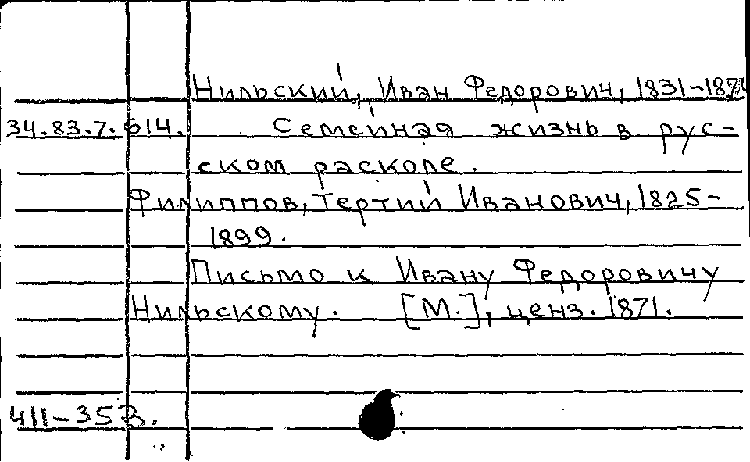 Нильский, Иван Федорович, 1831-
34.83.7.614. Семейная жизнь в рус-
ском расколе.
Филиппов, Тертий Иванович, 1825-
1899.
Письмо к Ивану Федоровичу
Нильскому. [М.], ценз. 1871.